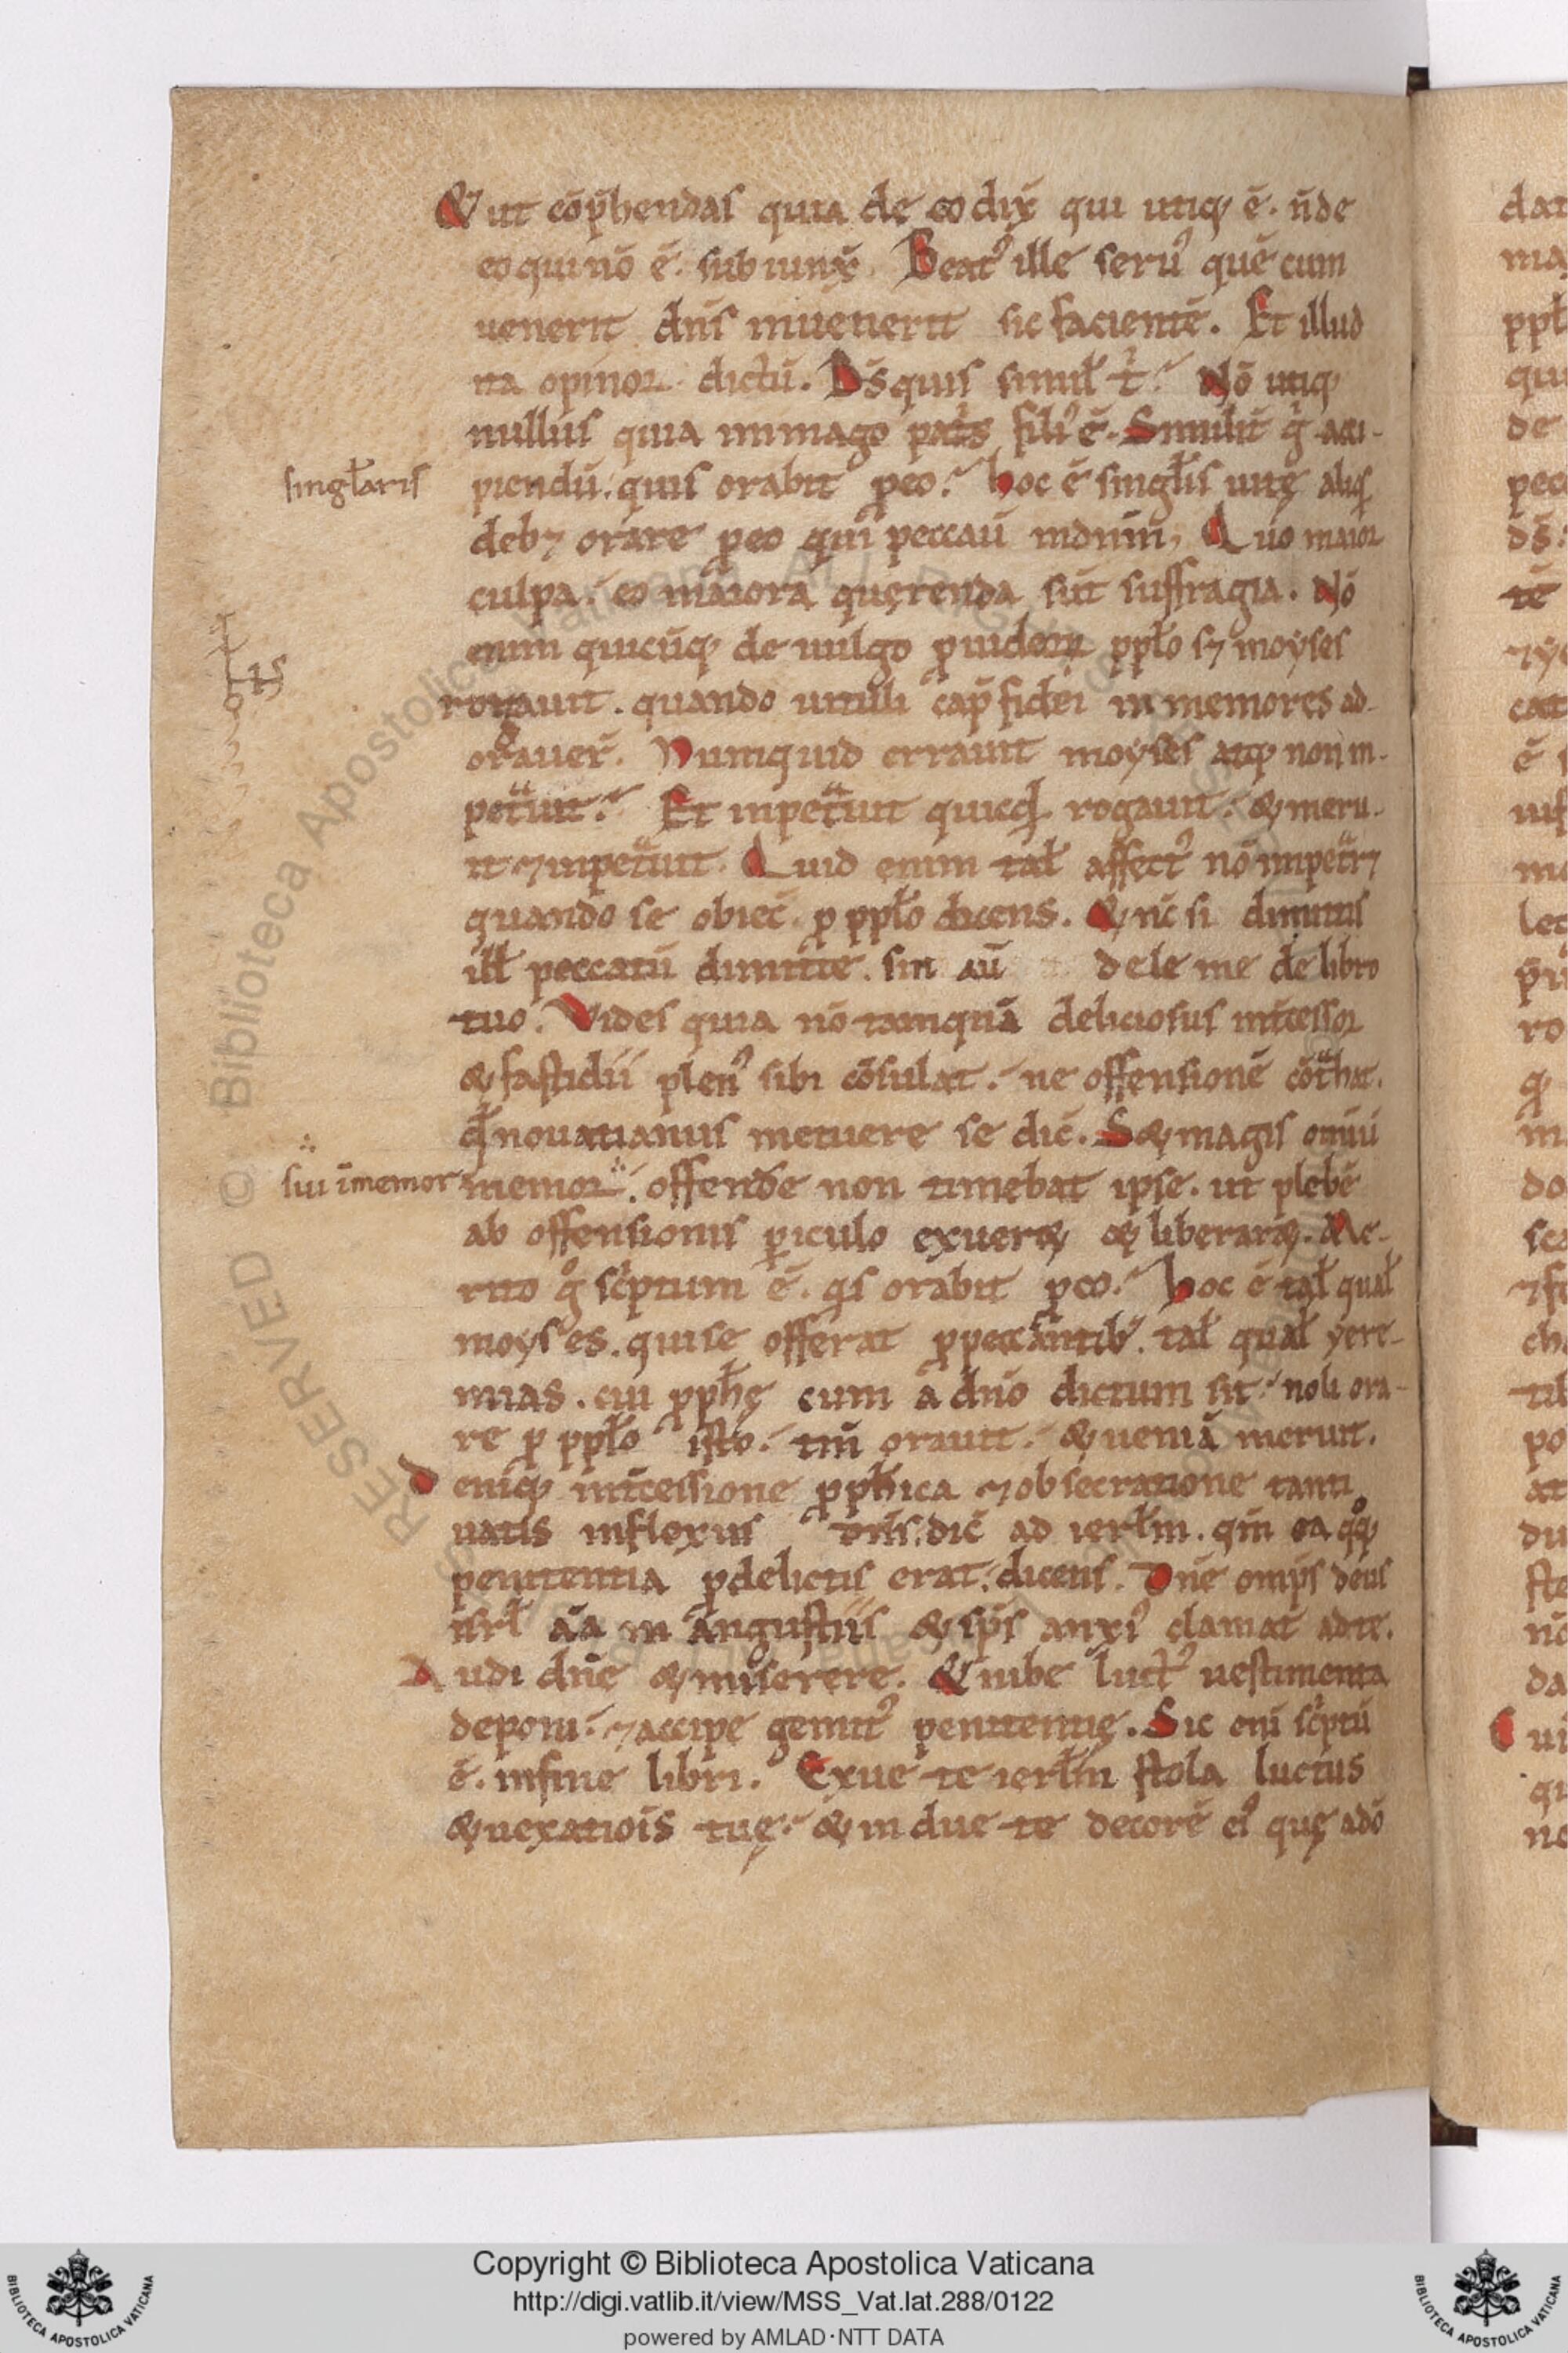 & ut cōp̄hendas quia de eo dix̄ qui utiq; ē. ūde
eo qui nō ē. subiunx̄. Beatꝰ ille seruꝰ quē cum
uenerit dn̄s inuenerit sic facientē. Et illud
ita opinor dictū. D̄s quis simił t̄? Nō utiq;
nullus quia inmago pat̄s filiꝰ ē. Similit̄ g̊ acci-
singłaris
piendū. quis orabit ꝓ eo? hoc ē singłis uitę aliq̄s
deb& orare ꝓ eo qui peccau̅ in dn̄m, Quo maior
culpa. eo maiora querenda sūt suffragia. Nō
enim quicūq; de uulgo ꝓ iudeoꝝ ppło s; moyses
rogauit. quando uituli cap̄ fidei inmemores ad-
orauer̄. Numquid errauit moyses atq; non in-
pet̄uit? Et inpet̄uit quicq̄d rogauit. & meru-
it ⁊ inpet̄uit. Quid enim tał affectꝰ nō inpetr&
quando se obiec̄ ꝓ ppło dicens. & nc̄ si dimittis
ill̄ peccatū dimitte. sin au̅ dele me de libro
tuo. Vides quia nō tamquā deliciosus int̄cessor
& fastidii plenꝰ sibi cōsulat. ne offensionē cōt̄hat.
q̄d nouatianus metuere se dic̄. S& magis om̄iū
sui īmemor
memor. offende non timebat ipse. ut plebē
ab offensionis ꝑiculo exuer& & liberar&. Me-
rito g̊ sc̄ptum ē. qis orabit ꝓ eo? hoc ē tał qual̄
moyses. qui se offerat ꝓ peccantibꝰ. tał qual̄ yere-
mias. cui ꝓph̄ę cum a dn̄o dictum sit. noli ora-
re ꝓ ppło isto. tm̄ orauit. & ueniā meruit.
Deniq; int̄cessione ꝓph̄ica ⁊ obsecratione tanti
uatis inflexus dn̄s. dic̄ ad ierłm. qm̄ ea q̊q;
penitentia ꝓ delictis erat. dicens. Dn̄e omp̄s deus
isrł aīa in angustiis & sp̄s anxiꝰ clamat ad te.
Audi dn̄e & miserere. & iube luctꝰ uestimenta
deponi. ⁊ accipe gemitꝰ penitentię. Sic eni̅ sc̄ptū
ē. in fine libri. Exue te ierłm stola luctus
& uexatiōis tuę. & indue te decorē eiꝰ quę a dō
Copyright © Biblioteca Apostolica Vaticana
http://digi.vatlib.it/view/MSS_Vat.lat.288/0122
powered by AMLAD·NTT DATA